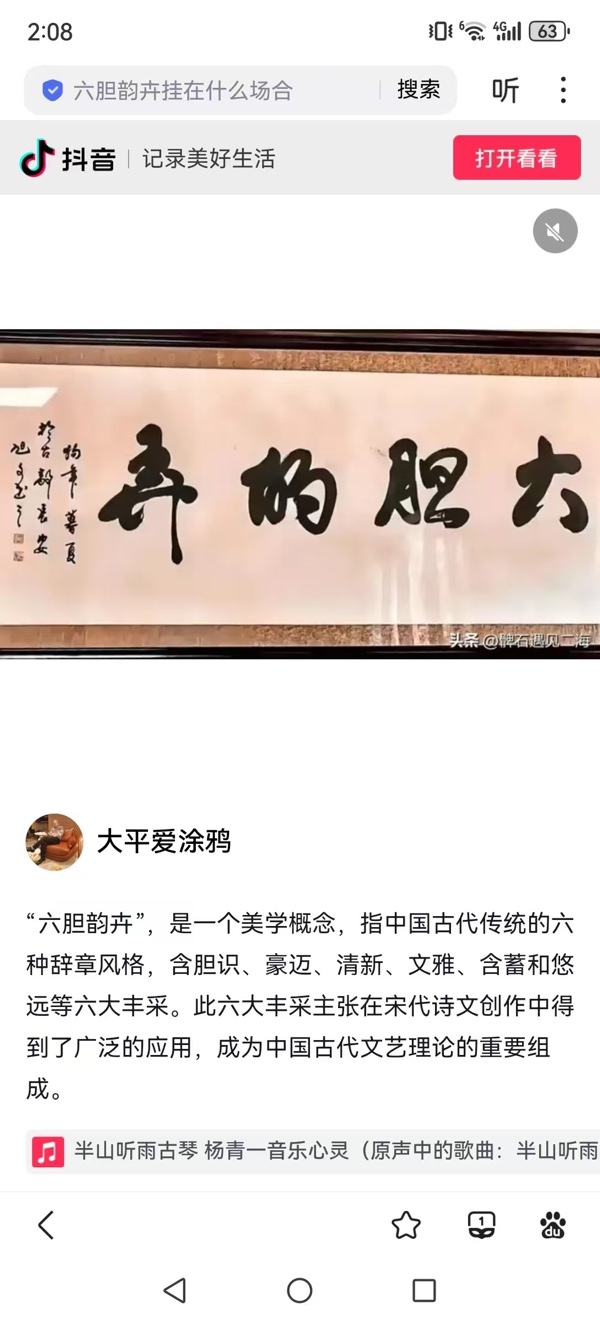 2:08 6 4G 63
六胆韵卉挂在什么场合 搜索 听
抖音 记录美好生活 打开看看
大胆的弄
狗年暮夏
於古都長安
头条 @牌石遇见二海
大平爱涂鸦
“六胆韵卉”，是一个美学概念，指中国古代传统的六
种辞章风格，含胆识、豪迈、清新、文雅、含蓄和悠
远等六大丰采。此六大丰采主张在宋代诗文创作中得
到了广泛的应用，成为中国古代文艺理论的重要组
成。
半山听雨古琴 杨青一音乐心灵（原声中的歌曲：半山听雨
1
du